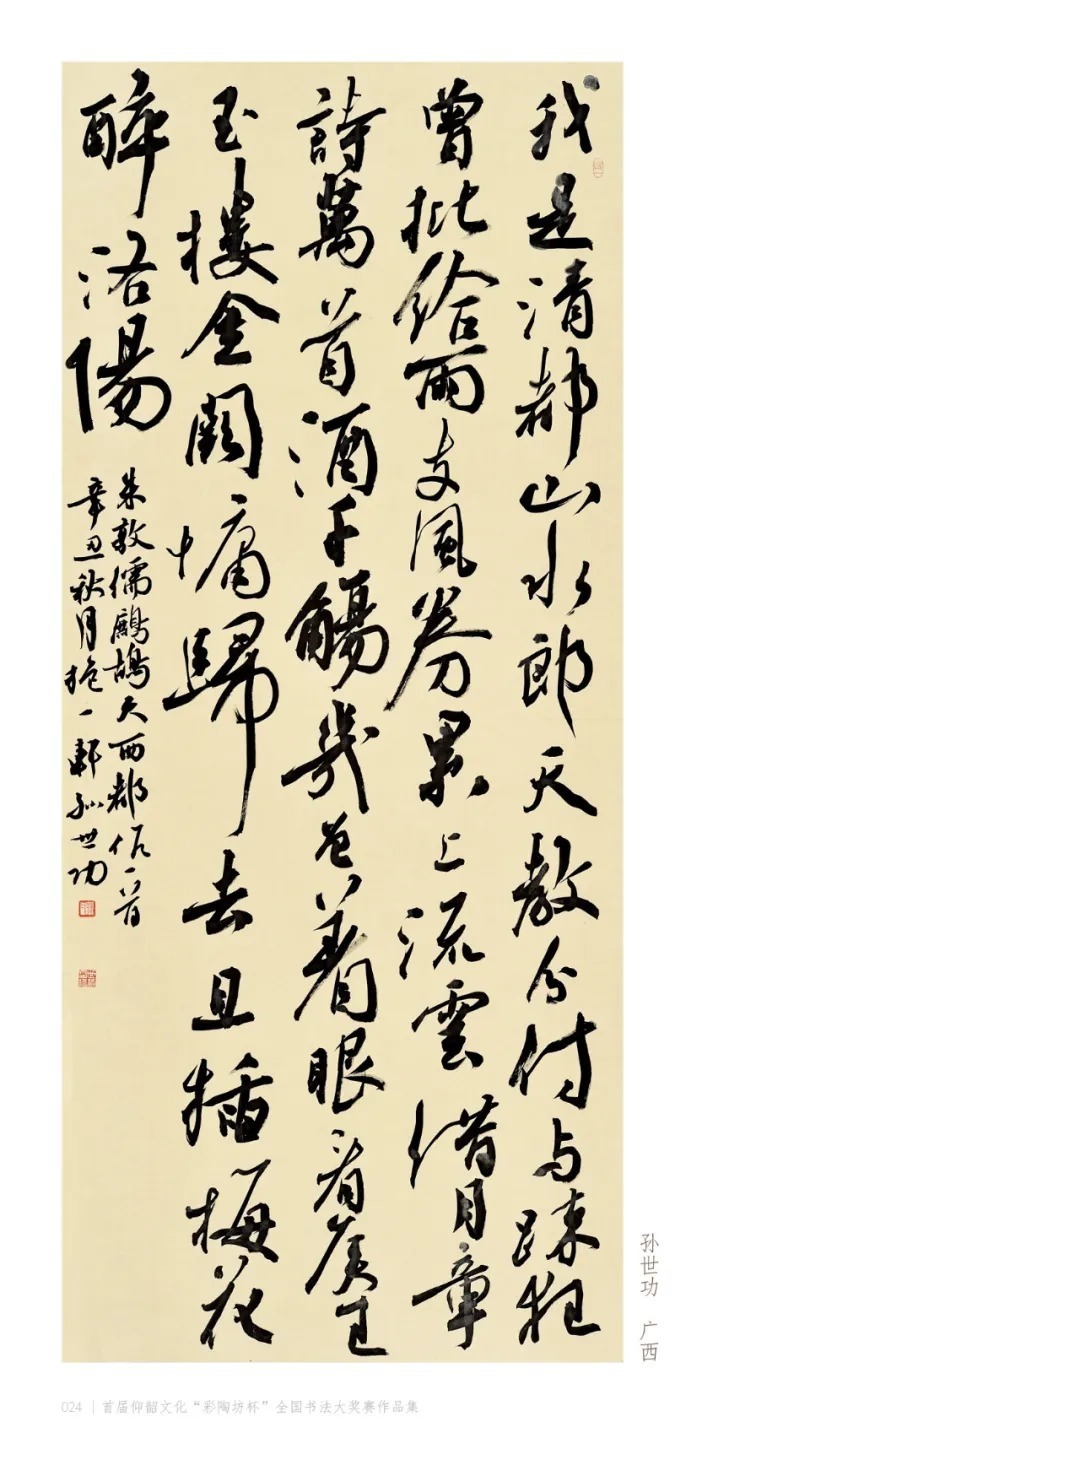 我是清都山水郎天教分付与疎狂
曾批給雨支風券累上流雲借月章
詩萬首酒千觴幾曾着眼看矦王
玉樓金闕慵歸去且插梅花
醉洛陽
朱敦儒鷓鴣天西都作一首
辛丑秋月抱一軒孙世功
孙世功 广西
024 | 首届仰韶文化“彩陶坊杯”全国书法大奖赛作品集